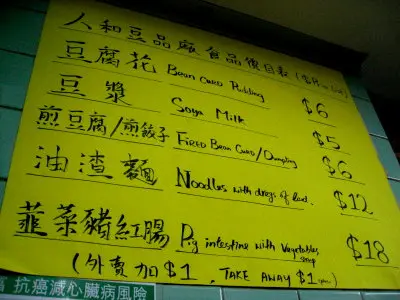 人和豆品廠食品價目表
豆腐花 Bean Curd Pudding $6
豆漿 Soya Milk $5
煎豆腐/煎餃子 Fired Bean Curd/Dumpling $6
油渣麵 Noodles with dregs of lard. $12
韮菜豬紅腸 Pig intestine with Vegetables $18
(外賣加$1, TAKE AWAY $1
抗癌減心臟病風險